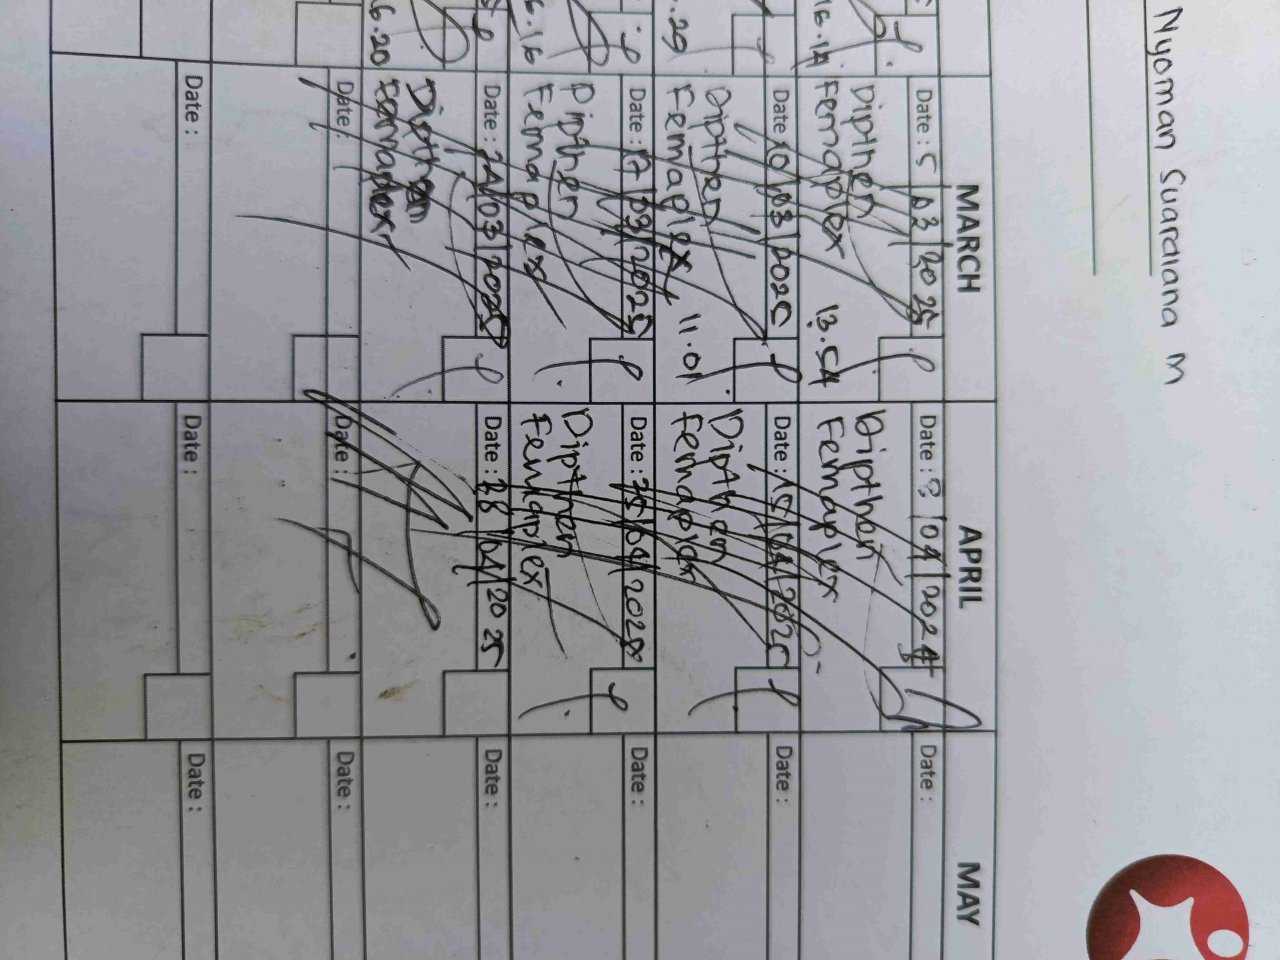 Nyoman Suardana M
MARCH
APRIL
MAY
Date : 5 / 03 / 2025
Dipthen
Femaplex
13.54
Date : ? / 04 / 2024
Dipthen
Femaplex
Date :
16.14
Date : 10 / 03 / 2025
Dipthen
Femaplex
11.01
Date : 15 / 04 / 2025
Dipthen
Femaplex
Date :
.29
Date : 17 / 03 / 2025
Dipthen
Femaplex
Date : 25 / 04 / 2025
Dipthen
Femaplex
Date :
6.16
Date : 24 / 03 / 2025
Dipthen
Femaplex
Date : 28 / 04 / 2025
Date :
6.20
Date :
Date :
Date :
Date :
Date :